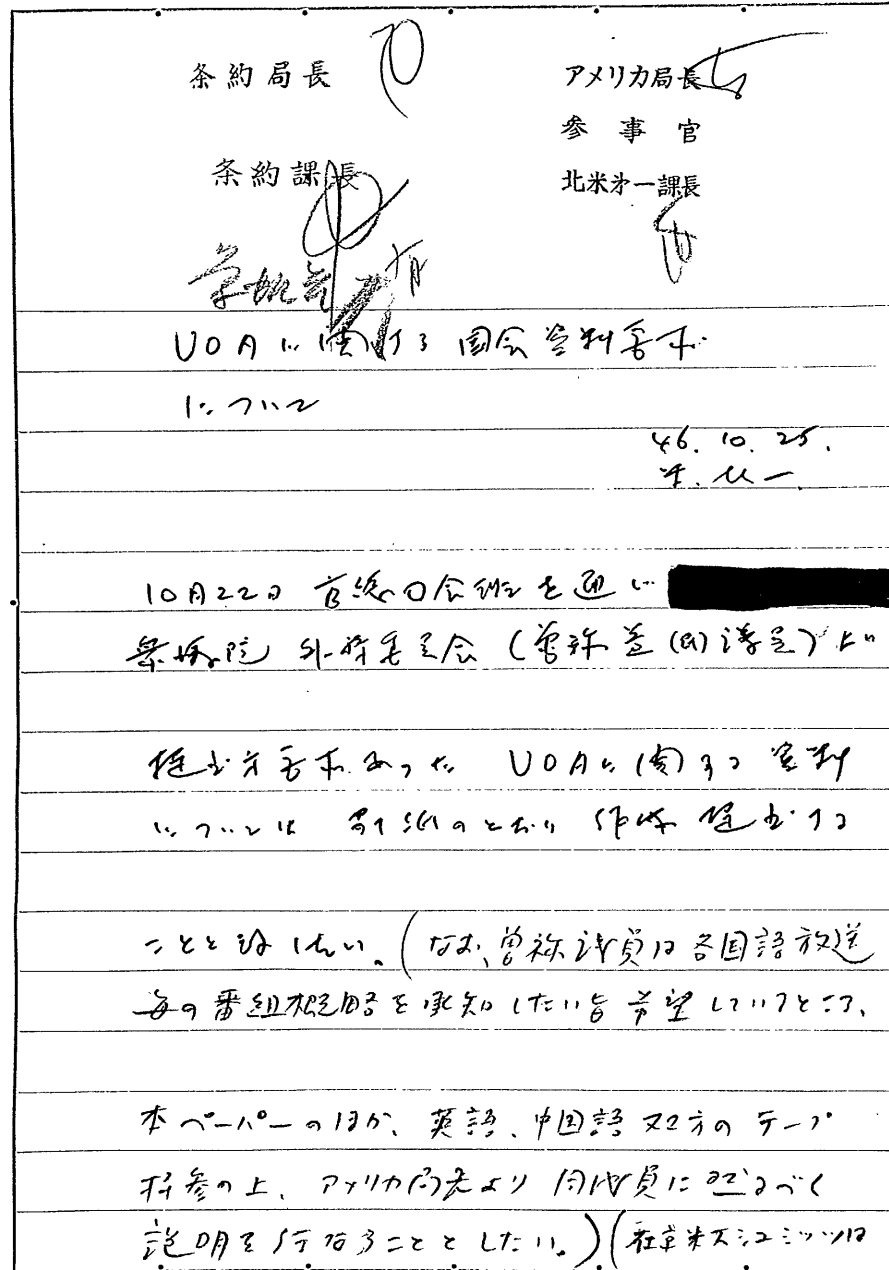 条約局長
アメリカ局長
参事官
条約課長
北米第一課長
VOAに関する国会資料要求
について
46.10.25.
米.北一
10月22日 官総の国会班を通じ
衆議院 外務委員会（曽祢益(民)議員）より
提出方要求あった VOAに関する資料
については 別紙のとおり 作成 提出する
ことと致したい。（なお、曽祢議員は各国語放送
毎の番組概略を承知したい旨希望しているところ、
本ペーパーのほか、英語、中国語双方のテープ
持参の上、アメリカ局長より同議員に然るべく
説明を行なうこととしたい。）（在京米大シュミッツは